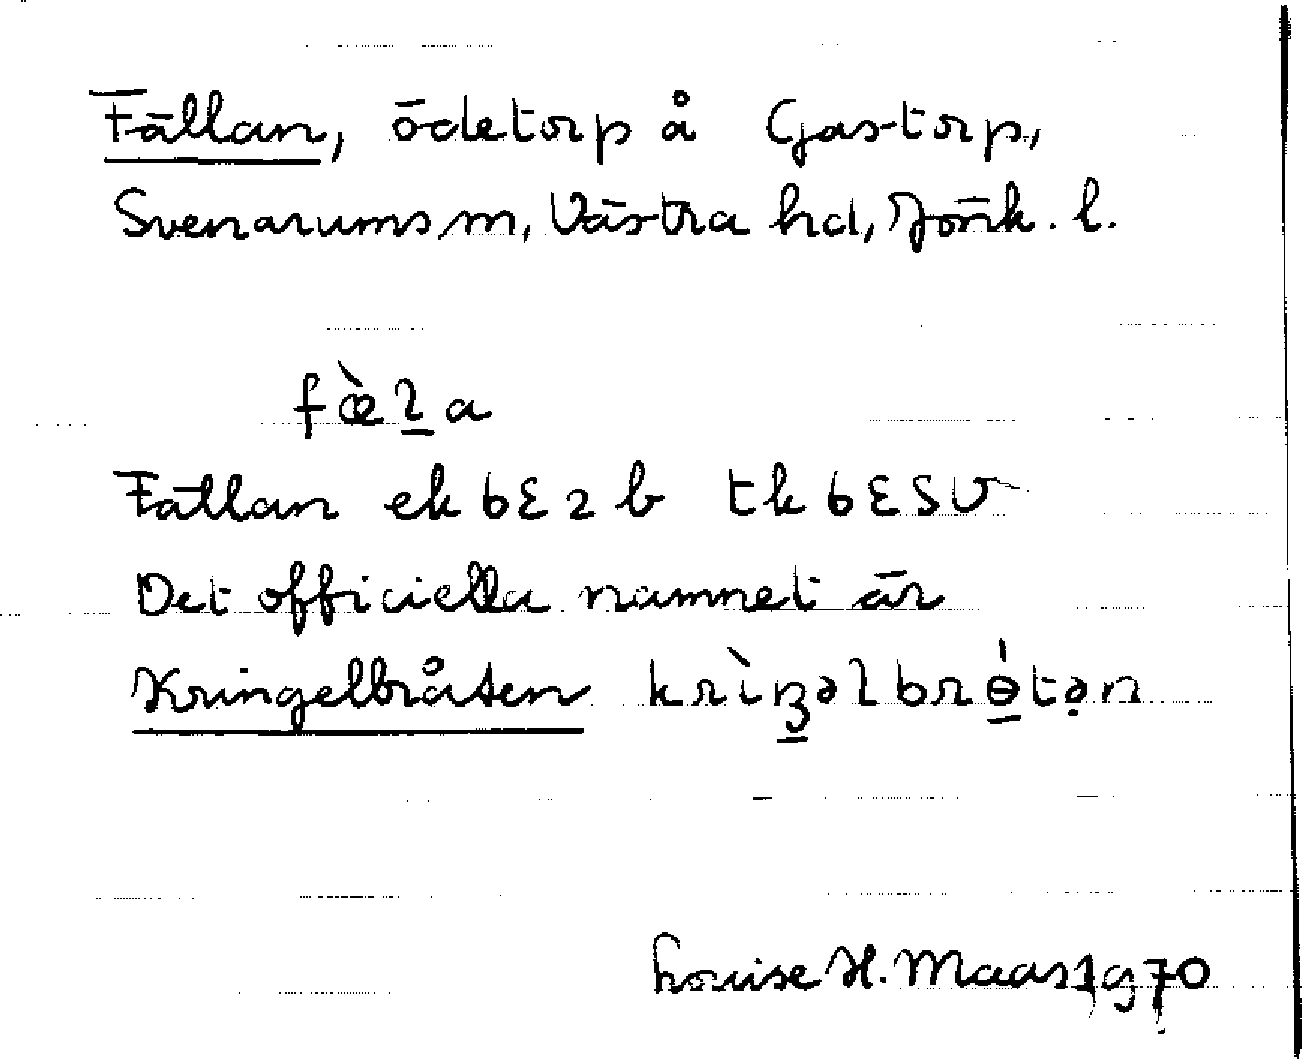 Fällan, ödetorp å Gastorp,
Svenarums sn, Västra hd, Jönk. l.
fæ̀l̠a
Fällan ek 6E2b tk 6ESV
Det officiella namnet är
Kringelbråten krìŋ̠əlbrɵ̠́tə̣n
Louise H. Maas 1970